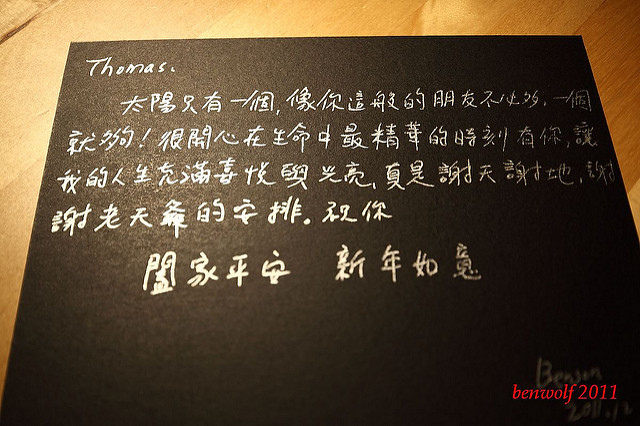 Thomas.
太陽只有一個,像你這般的朋友不必多.一個
就夠!很開心在生命中最精華的時刻有你,讓
我的人生充滿喜悅與光亮,真是謝天謝地,謝
謝老天爺的安排。祝你
闔家平安 新年如意
Benson
benwolf 2011